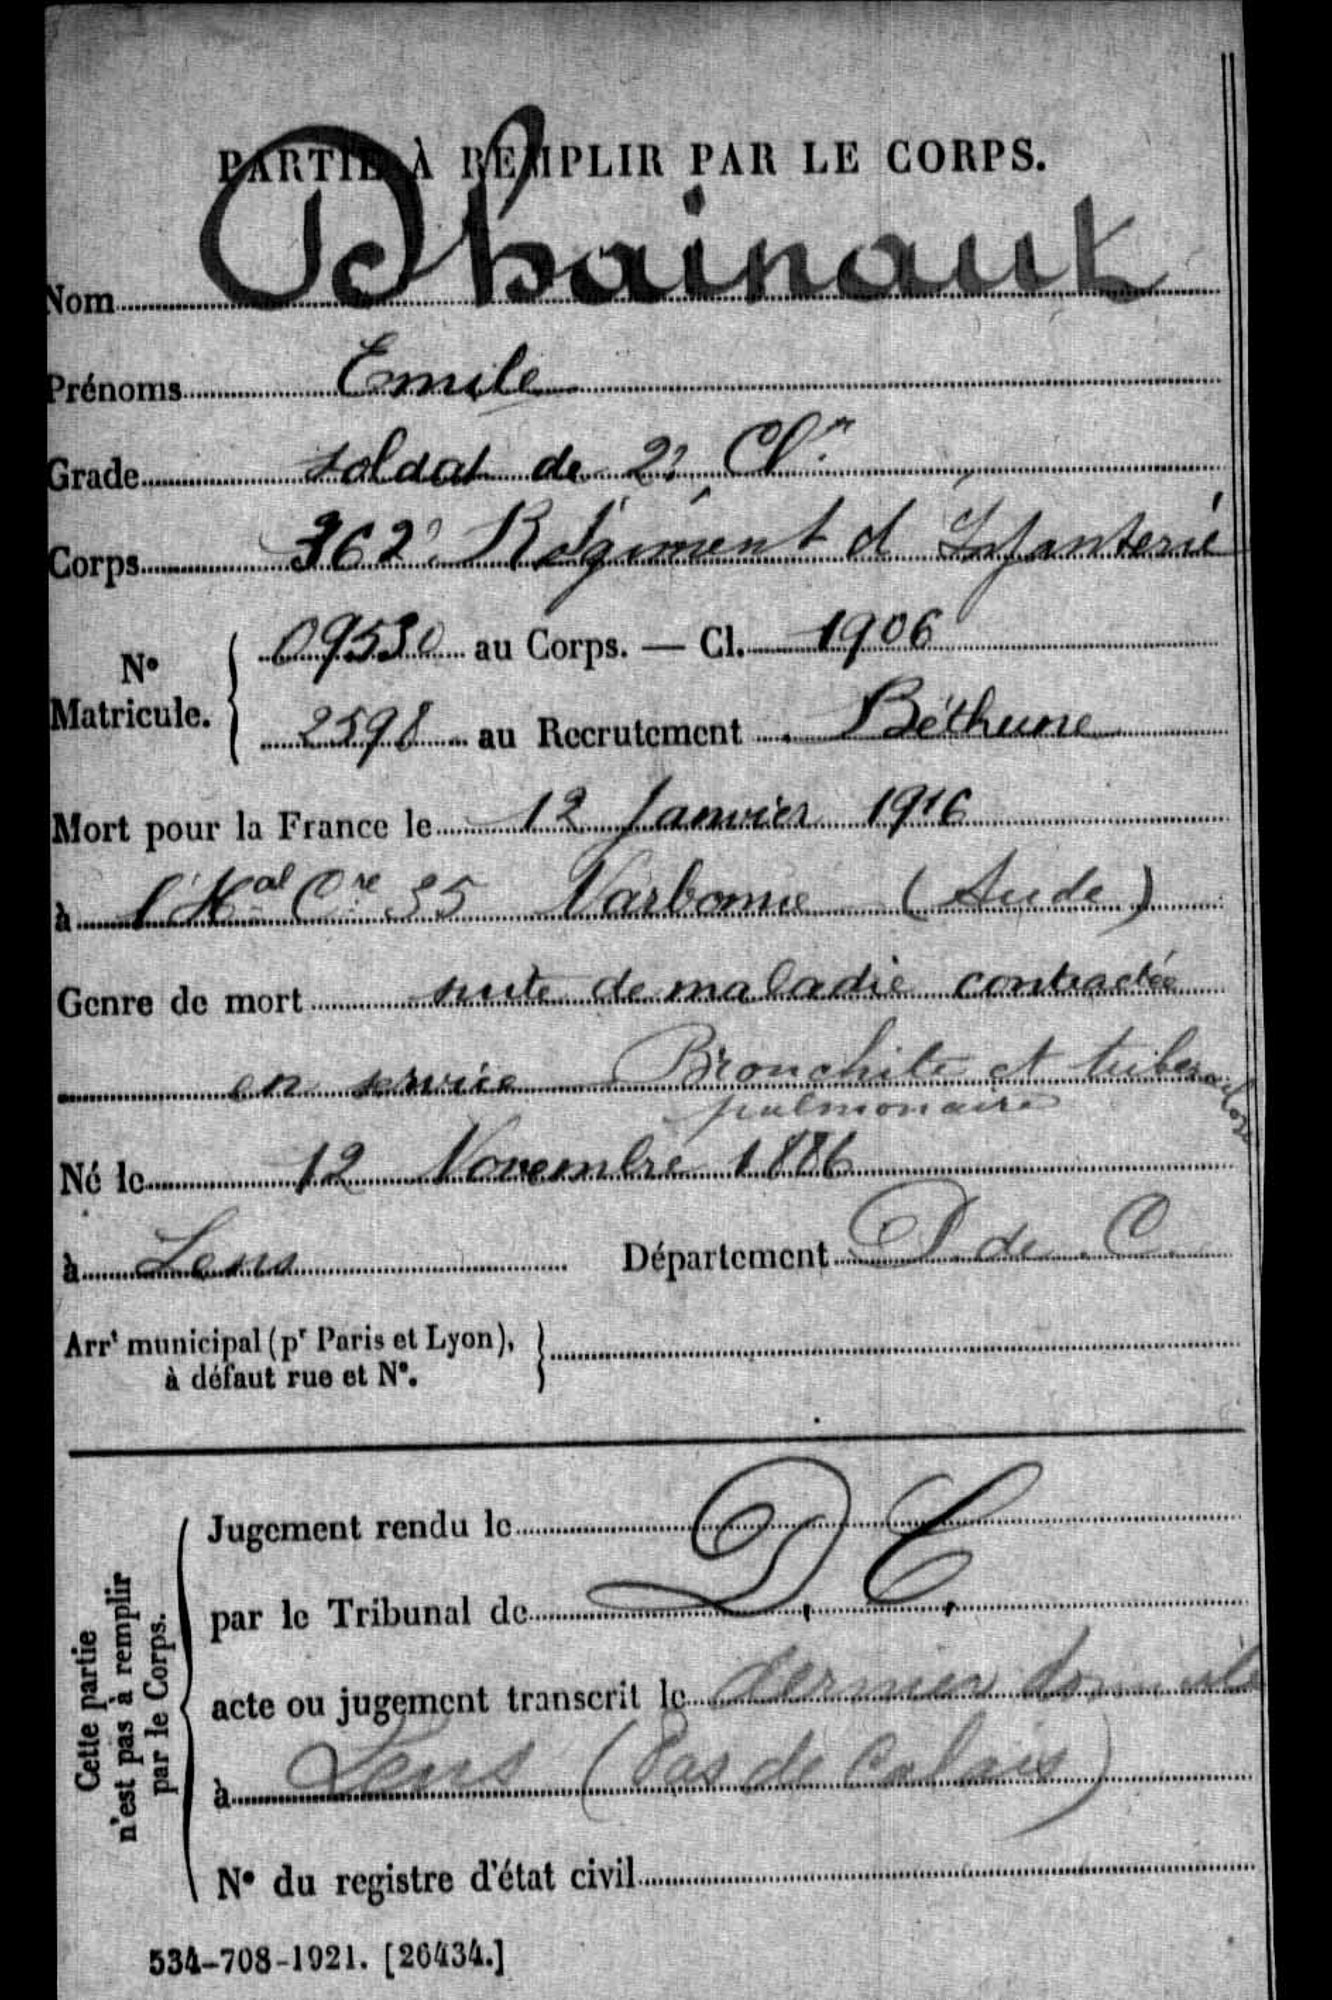 PARTIE À REMPLIR PAR LE CORPS.
Nom Dhainaut
Prénoms Emile
Grade soldat de 2e Cl.
Corps 362e Régiment d'Infanterie
N° Matricule. { 09530 au Corps. — Cl. 1906
2598 au Recrutement Béthune
Mort pour la France le 12 Janvier 1916
à l'Hal Cre 35 Narbonne (Aude)
Genre de mort suite de maladie contractée
en service Bronchite et tuberculose
pulmonaire
Né le 12 Novembre 1886
à Lens Département P. de C.
Arrt municipal (pr Paris et Lyon), }
à défaut rue et N°.
Cette partie
n'est pas à remplir
par le Corps.
Jugement rendu le
par le Tribunal de D. C.
acte ou jugement transcrit le dernier domicile
à Lens (Pas de Calais)
N° du registre d'état civil
534-708-1921. [26434.]